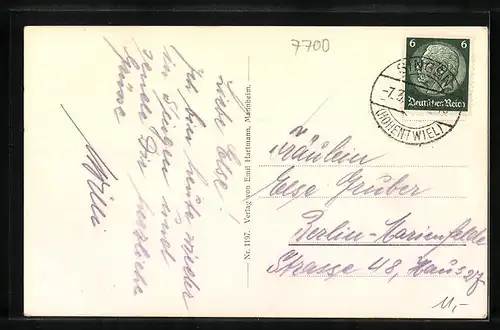 7700
Liebe Else!
Ich bin heute wieder
in Singen und
sende Dir herzliche
Grüsse
Willi
Nr. 1197. Verlag von Emil Hartmann, Mannheim.
6 6
Deutsches Reich
SINGEN
-7.3.
(HOHENTWIEL)
Fräulein
Else Gruber
Berlin-Marienfelde
Strasse 48, Haus 27
11,-